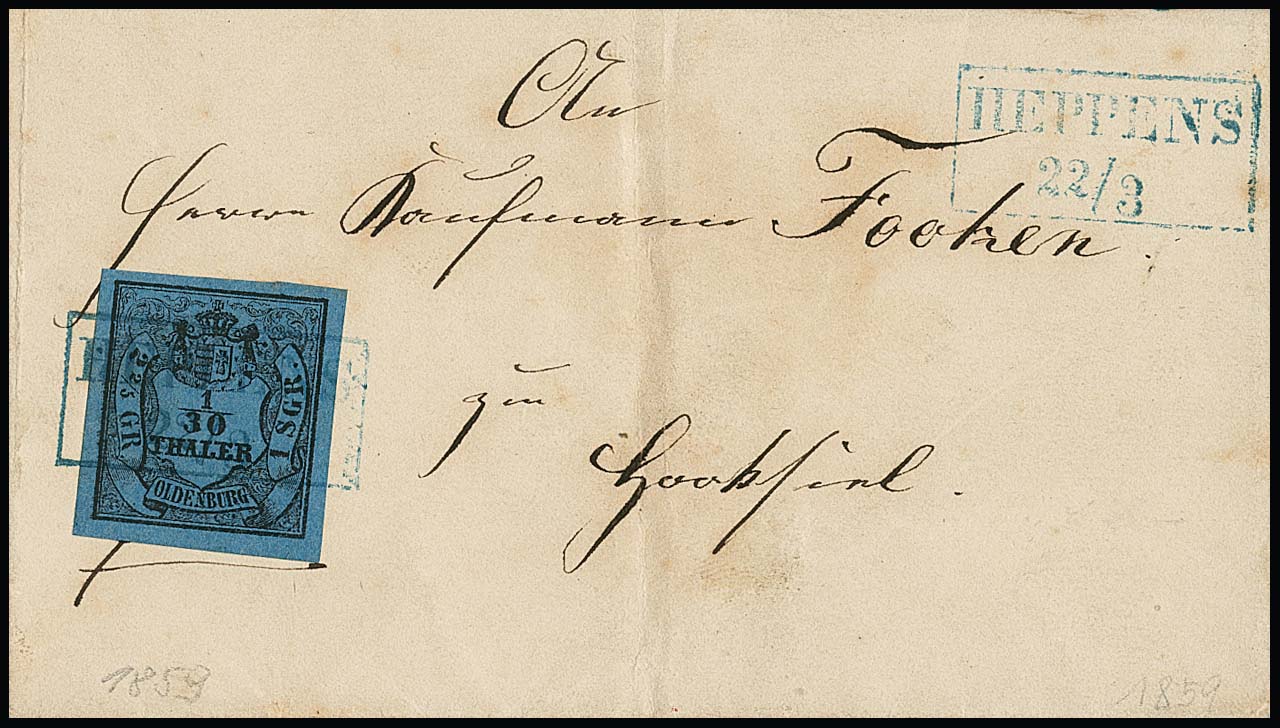 An
HEPPENS
22/3
Herrn Kaufmann Fooken.
zu
Hooksiel.
2 2/5 GR
1
30
THALER
1 SGR.
OLDENBURG
1859
1859